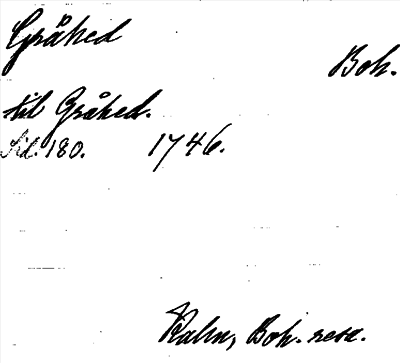 Gråhed
Boh.
til Gråhed.
Sid. 180. 1746.
Kalm, Boh. resa.